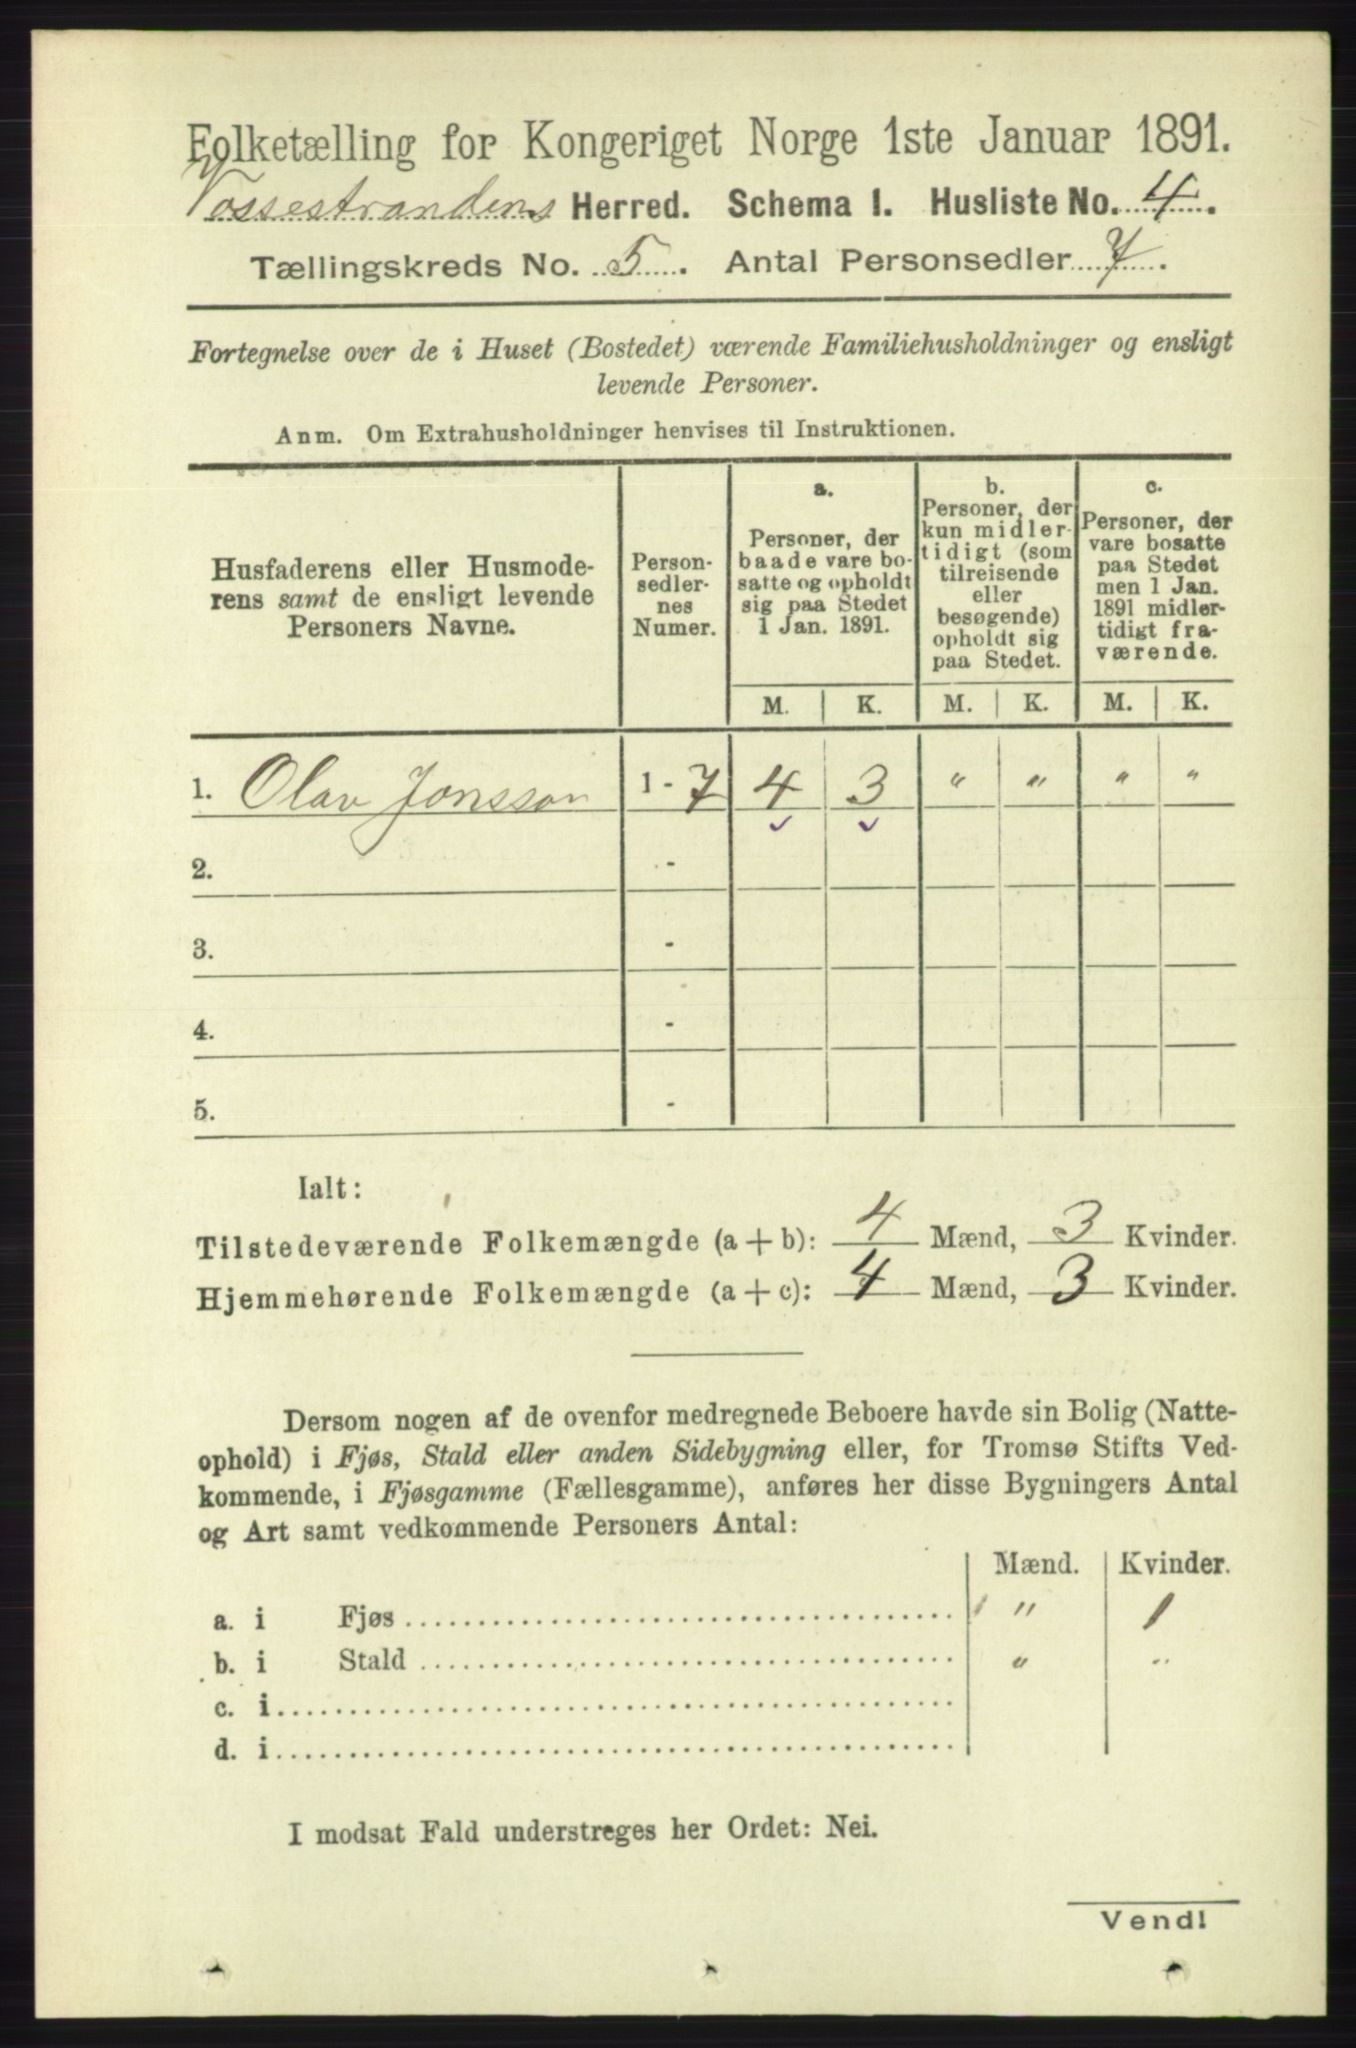 Folketælling for Kongeriget Norge 1ste Januar 1891.
Vossestrandens Herred. Schema 1. Husliste No. 4.
Tællingskreds No. 5. Antal Personsedler 7.
Fortegnelse over de i Huset (Bostedet) værende Familiehusholdninger og ensligt
levende Personer.
Anm. Om Extrahusholdninger henvises til Instruktionen.
Husfaderens eller Husmode-
rens samt de ensligt levende
Personers Navne.
Person-
sedler-
nes
Numer.
a.
Personer, der
baade vare bo-
satte og opholdt
sig paa Stedet
1 Jan. 1891.
b.
Personer, der
kun midler-
tidigt (som
tilreisende
eller
besøgende)
opholdt sig
paa Stedet.
c.
Personer, der
vare bosatte
paa Stedet
men 1 Jan.
1891 midler-
tidigt fra-
værende.
M. K. M. K. M. K.
1. Olav Jonsson 1 - 7 4 3 " " " "
2. -
3. -
4. -
5. -
Ialt:
Tilstedeværende Folkemængde (a + b): 4 Mænd, 3 Kvinder.
Hjemmehørende Folkemængde (a + c): 4 Mænd, 3 Kvinder.
Dersom nogen af de ovenfor medregnede Beboere havde sin Bolig (Natte-
ophold) i Fjøs, Stald eller anden Sidebygning eller, for Tromsø Stifts Ved-
kommende, i Fjøsgamme (Fællesgamme), anføres her disse Bygningers Antal
og Art samt vedkommende Personers Antal:
Mænd. Kvinder.
a. i Fjøs 1 " 1
b. i Stald " "
c. i
d. i
I modsat Fald understreges her Ordet: Nei.
Vend!